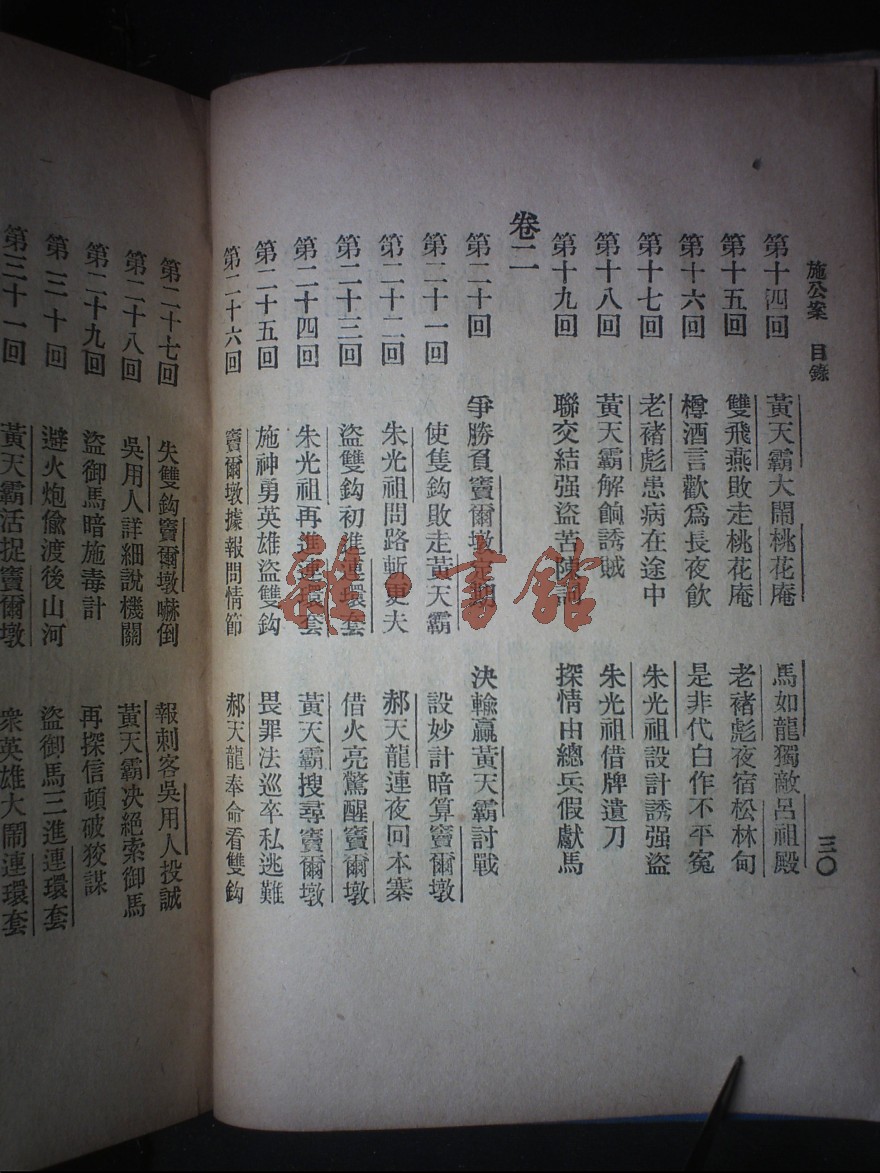 施公案 目錄 三〇
第十四回 黃天霸大鬧桃花庵 馬如龍獨敵呂祖殿
第十五回 雙飛燕敗走桃花庵 老褚彪夜宿松林甸
第十六回 樽酒言歡爲長夜飲 是非代白作不平冤
第十七回 老褚彪患病在途中 朱光祖設計誘强盜
第十八回 黃天霸解餉誘賊 朱光祖借牌遣刀
第十九回 聯交結强盜苦陳詞 探情由總兵假獻馬
卷二
第二十回 爭勝負竇爾墩定期 決輸贏黃天霸討戰
第二十一回 使隻鈎敗走黃天霸 設妙計暗算竇爾墩
第二十二回 朱光祖問路斬更夫 郝天龍連夜回本寨
第二十三回 盜雙鈎初進連環套 借火亮驚醒竇爾墩
第二十四回 朱光祖再進連環套 黃天霸搜尋竇爾墩
第二十五回 施神勇英雄盜雙鈎 畏罪法巡卒私逃難
第二十六回 竇爾墩據報問情節 郝天龍奉命看雙鈎
第二十七回 失雙鈎竇爾墩嚇倒 報刺客吳用人投誠
第二十八回 吳用人詳細說機關 黃天霸決絕索御馬
第二十九回 盜御馬暗施毒計 再探信頓破狡謀
第三十回 避火炮偸渡後山河 盜御馬三進連環套
第三十一回 黃天霸活捉竇爾墩 衆英雄大鬧連環套
雜·書館